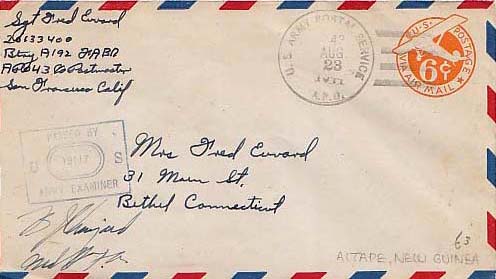 Sgt Fred Eward
20633400
Btry A 192 FABN
APO 43 % Postmaster
San Francisco Calif
U.S. ARMY POSTAL SERVICE
AUG
23
A.P.O.
U.S. POSTAGE
6¢
VIA AIR MAIL
PASSED BY
U S
ARMY EXAMINER
Mrs Fred Ewward
31 Main St.
Bethel Connecticut
63
AITAPE, NEW GUINEA